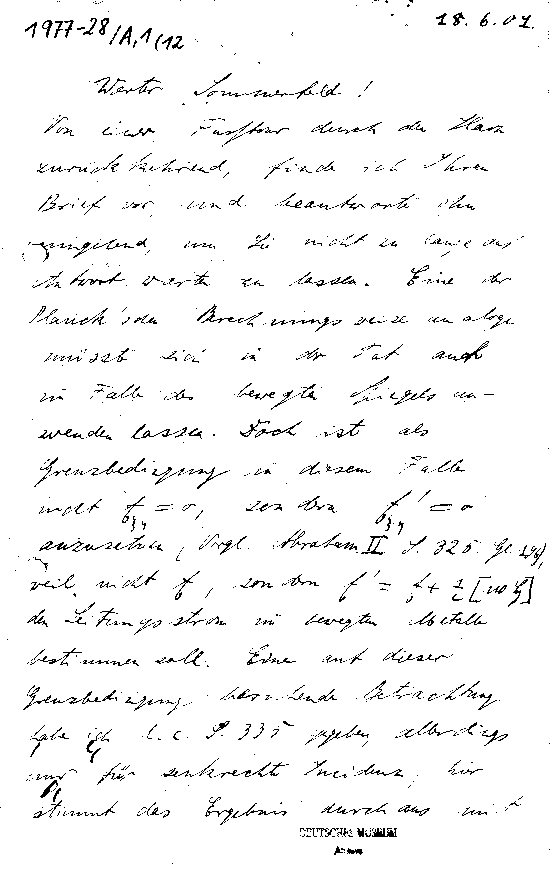 1977-28/A,1(12
18. 6. 07.
Werter Sommerfeld!
Von einer Fusstour durch den Harz
zurückkehrend, finde ich Ihren
Brief vor, und beantworte ihn
umgehend, um Sie nicht zu lange auf
Antwort warten zu lassen. Eine der
Planck'schen Berechnungsweise analoge
müsste sich in der Tat auch
im Falle des bewegten Spiegels an-
wenden lassen. Doch ist als
Grenzbedingung in diesem Falle
nicht = 0, sondern ' = 0
anzusetzen, (Vrgl. Abraham II S. 325 Gl
weil nicht , sondern ' = +
den Leitungsstrom im bewegten Metalle
bestimmen soll. Eine auf dieser
Grenzbedingung beruhende Betrachtung
habe ich l. c. S. 335 gegeben, allerdings
nur für senkrechte Incidenz; hier
stimmt das Ergebnis durchaus mit
DEUTSCHES MUSEUM